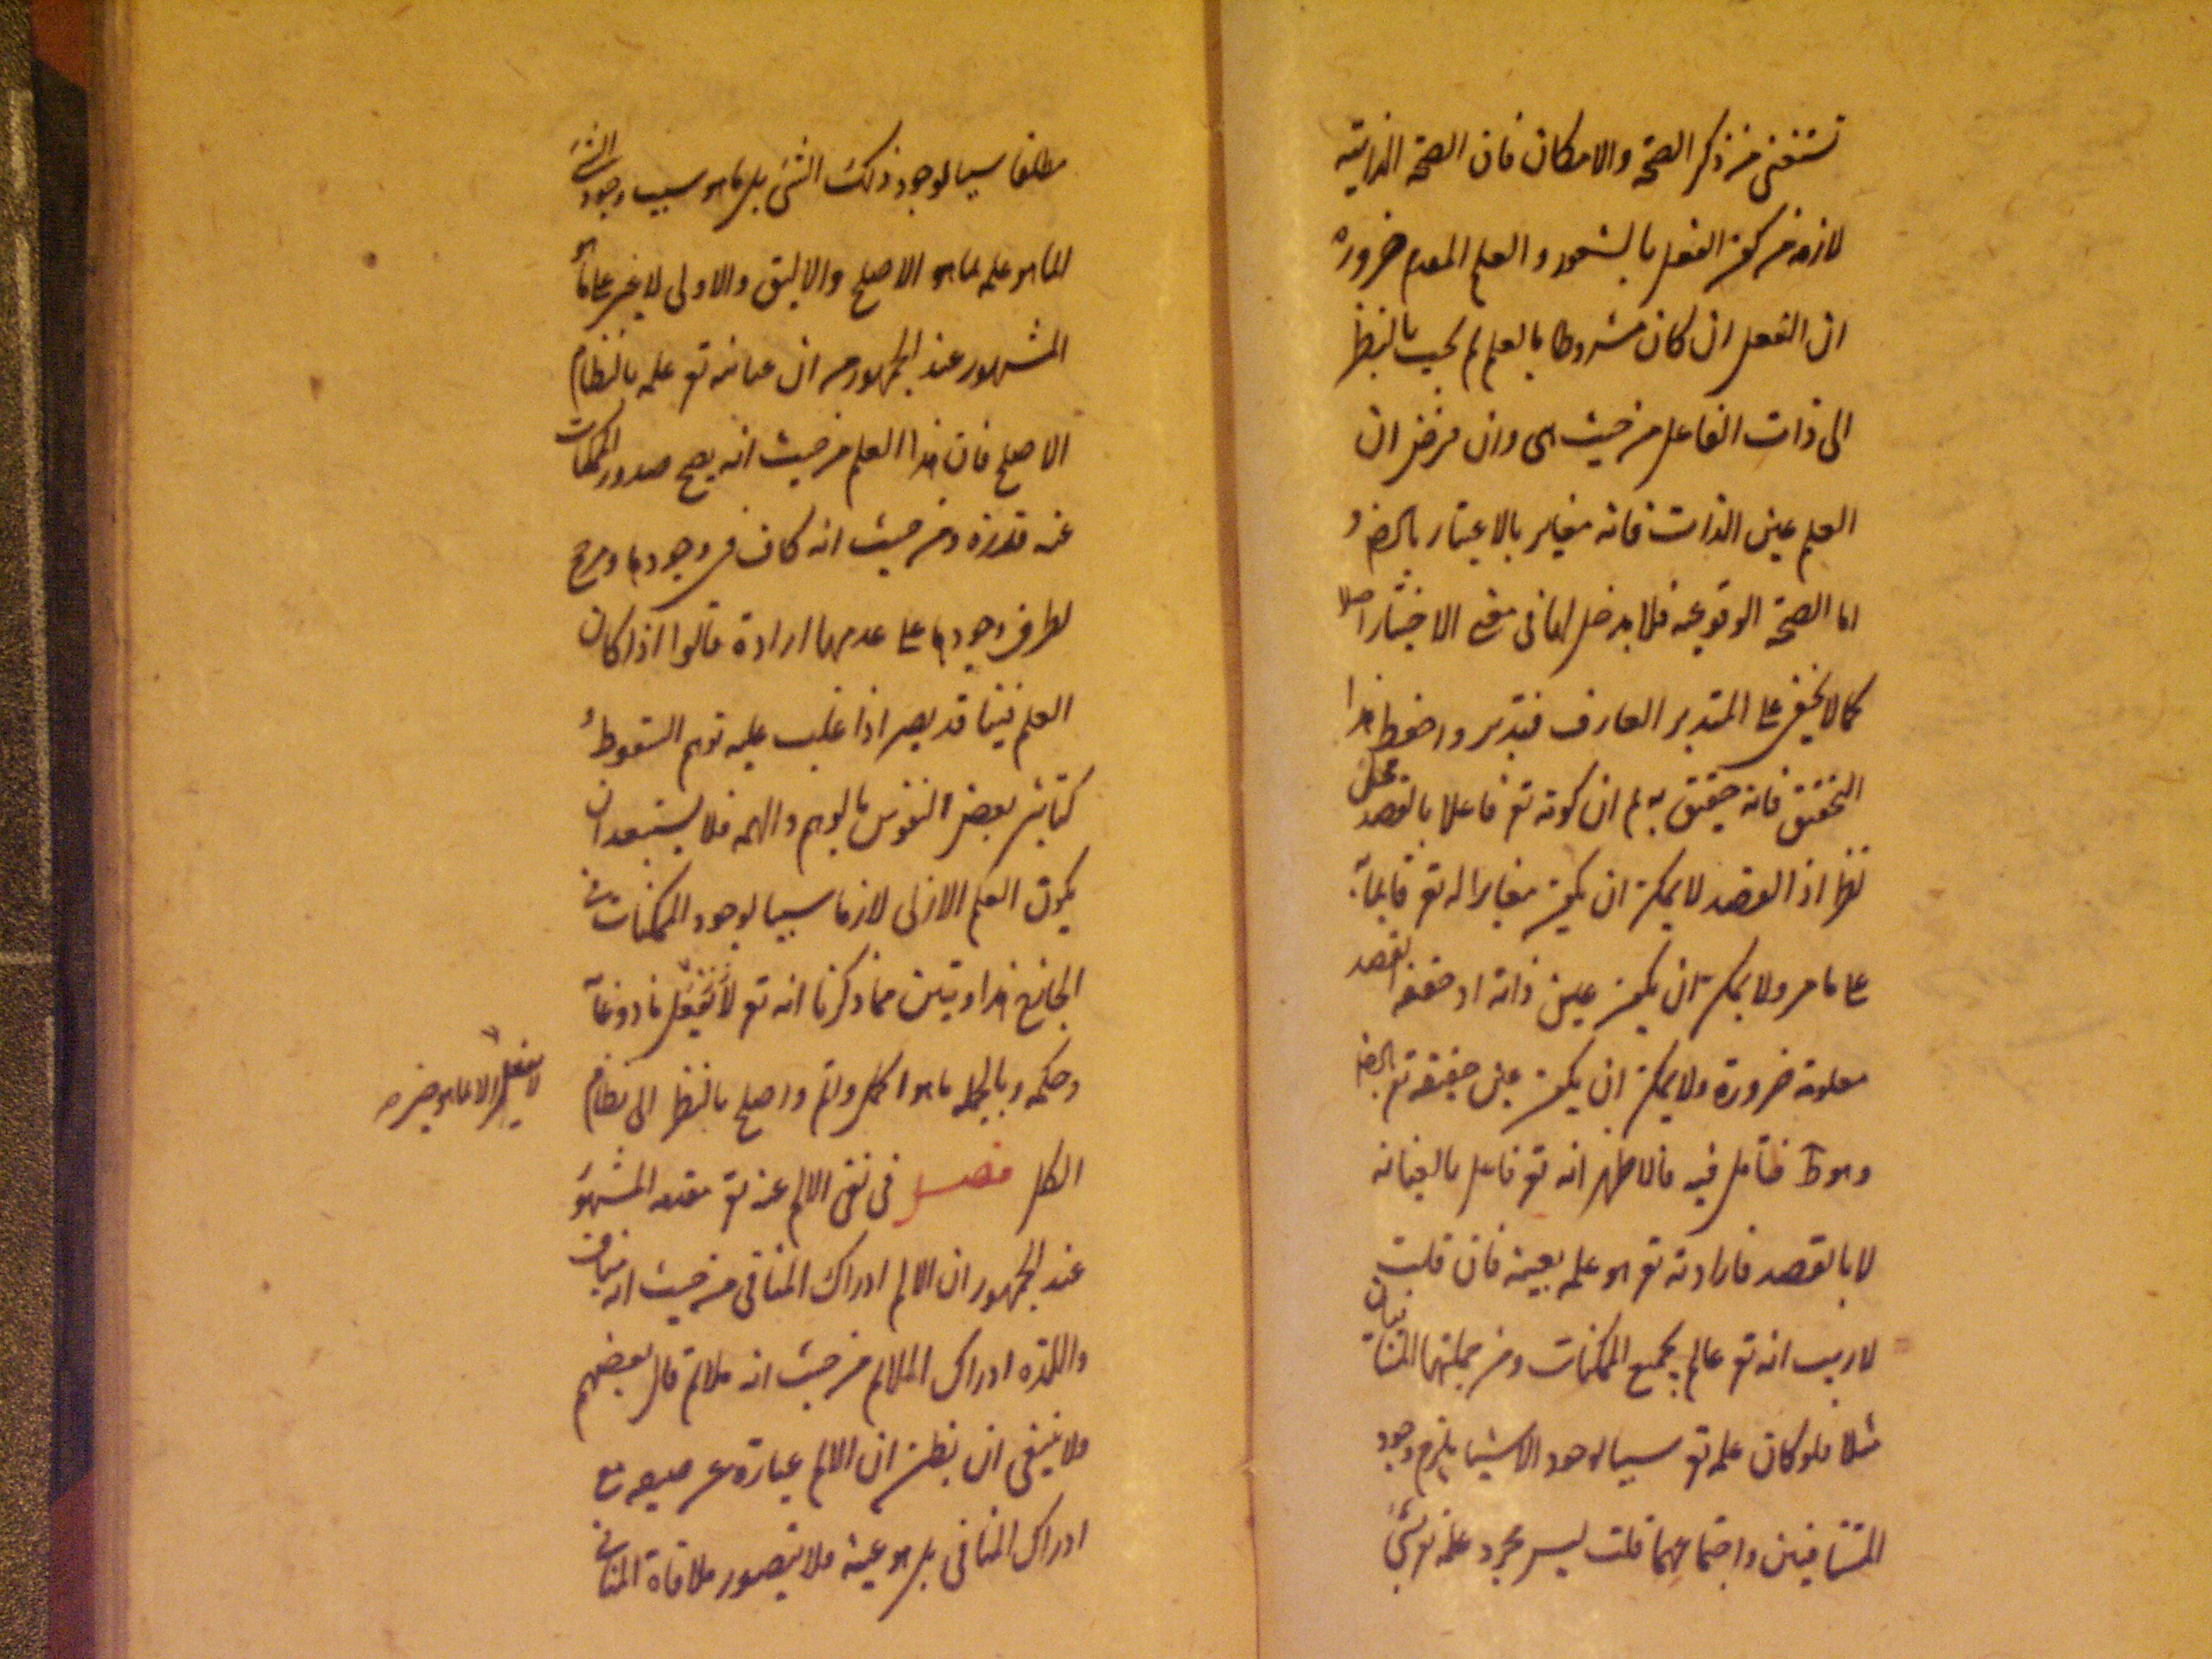 تستغنى من ذكر الصحة والامكان فان الصحة الذاتية
لازمة من كون الفعل بالشعور والعلم المقدم ضرورة
ان الفعل ان كان مشروطا بالعلم لم يجب بالنظر
الى ذات الفاعل من حيث هى وان فرض ان
العلم عين الذات فانه مغاير بالاعتبار بالضرو
اما الصحة الوقوعية فلا مدخل لها فى معنى الاختيار اصلا
كما لا يخفى على المتدبر العارف فتدبر واحفظ هذا
التحقيق فانه حقيق به ثم ان كونه تع فاعلا بالقصد محل
نظر اذ القصد لا يمكن ان يكون مغايرا له تع قايما به
على ما مر ولا يمكن ان يكون عين ذاته اذ حقيقة القصد
معلومة ضرورة ولا يمكن ان يكون عين حقيقته تع بالضر
وهو ظ فتأمل فيه فالاظهر انه تع فاعل بالعناية
لا بالقصد فارادته تع هو علمه بعينه فان قلت
لا ريب انه تع عالم بجميع الممكنات ومن جملتها المتنافيان
مثلا فلو كان علمه تع سببا لوجود الاشيا يلزم وجود
المتنافيين واجتماعهما قلت ليس مجرد علمه تع بشئ
مطلقا سببا لوجود ذلك الشئ بل ما هو سبب وجود الشئ
انما هو علمه بما هو الاصلح والاليق والاولى لا غير على ما هو
المشهور عند الجمهور من ان عنايته تع علمه بالنظام
الاصلح فان هذا العلم من حيث انه يصح صدور الممكنات
عنه قدرة ومن حيث انه كاف فى وجودها ومرجح
لطرف وجودها على عدمها ارادة قالوا اذا كان
العلم فينا قد يصير اذا غلب عليه توهم السقوط و
كتاثير بعض النفوس بالوهم والهمة فلا يستبعد ان
يكون العلم الازلى لازما سببا لوجود الممكنات فى
الخارج هذا وتبين مما ذكرنا انه تع لا يفعل
وحكمة وبالجملة ما هو اكمل واتم واصلح بالنظر الى نظام
لا يفعل الا ما هو خير
الكل فصل فى نفى الالم عنه تع مقدمة المشهو
عند الجمهور ان الالم ادراك المنافى من حيث انه مناف
واللذة ادراك الملائم من حيث انه ملائم قال بعضهم
ولا ينبغى ان يظن ان الالم عبارة عن
ادراك المنافى بل هو عينه فلا يتصور ملاقاة المنافى